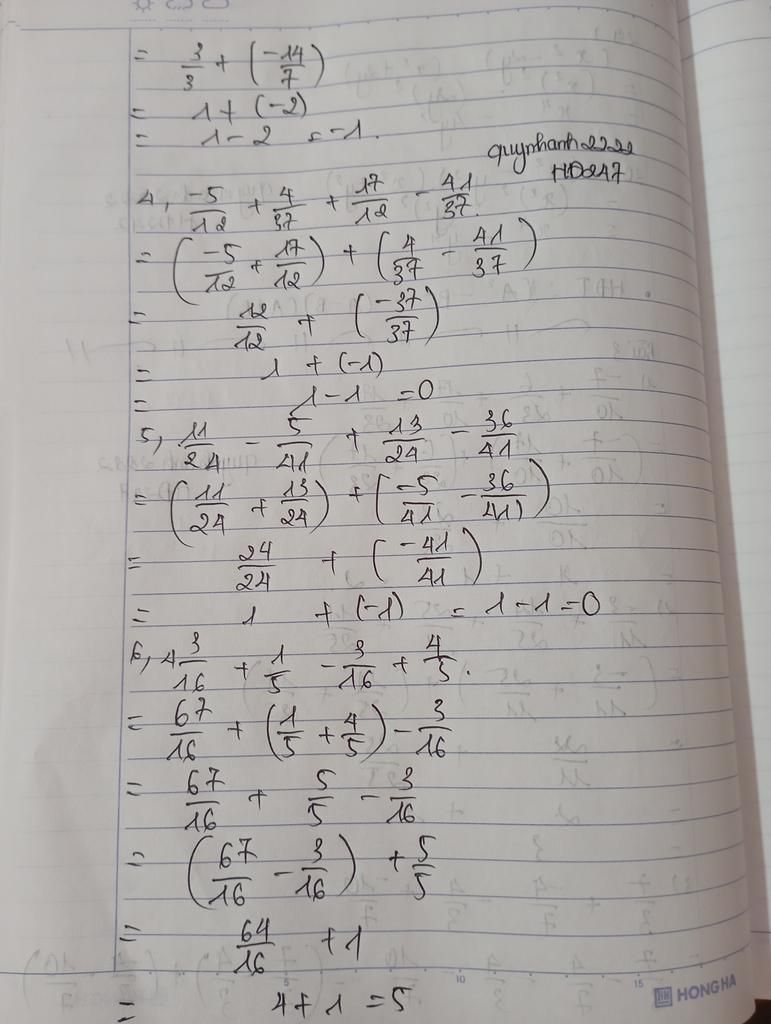 = 3/3 + (-14/7)
= 1 + (-2)
= 1 - 2 = -1.
quynhanh2722
HD247
4, -5/12 + 4/37 + 17/12 - 41/37.
= (-5/12 + 17/12) + (4/37 - 41/37)
= 12/12 + (-37/37)
= 1 + (-1)
= 1 - 1 = 0
5, 11/24 - 5/41 + 13/24 - 36/41
= (11/24 + 13/24) + (-5/41 - 36/41)
= 24/24 + (-41/41)
= 1 + (-1) = 1 - 1 = 0
6, 4 3/16 + 1/5 - 3/16 + 4/5.
= 67/16 + (1/5 + 4/5) - 3/16
= 67/16 + 5/5 - 3/16
= (67/16 - 3/16) + 5/5
= 64/16 + 1
= 4 + 1 = 5
5 10 15
HONG HA